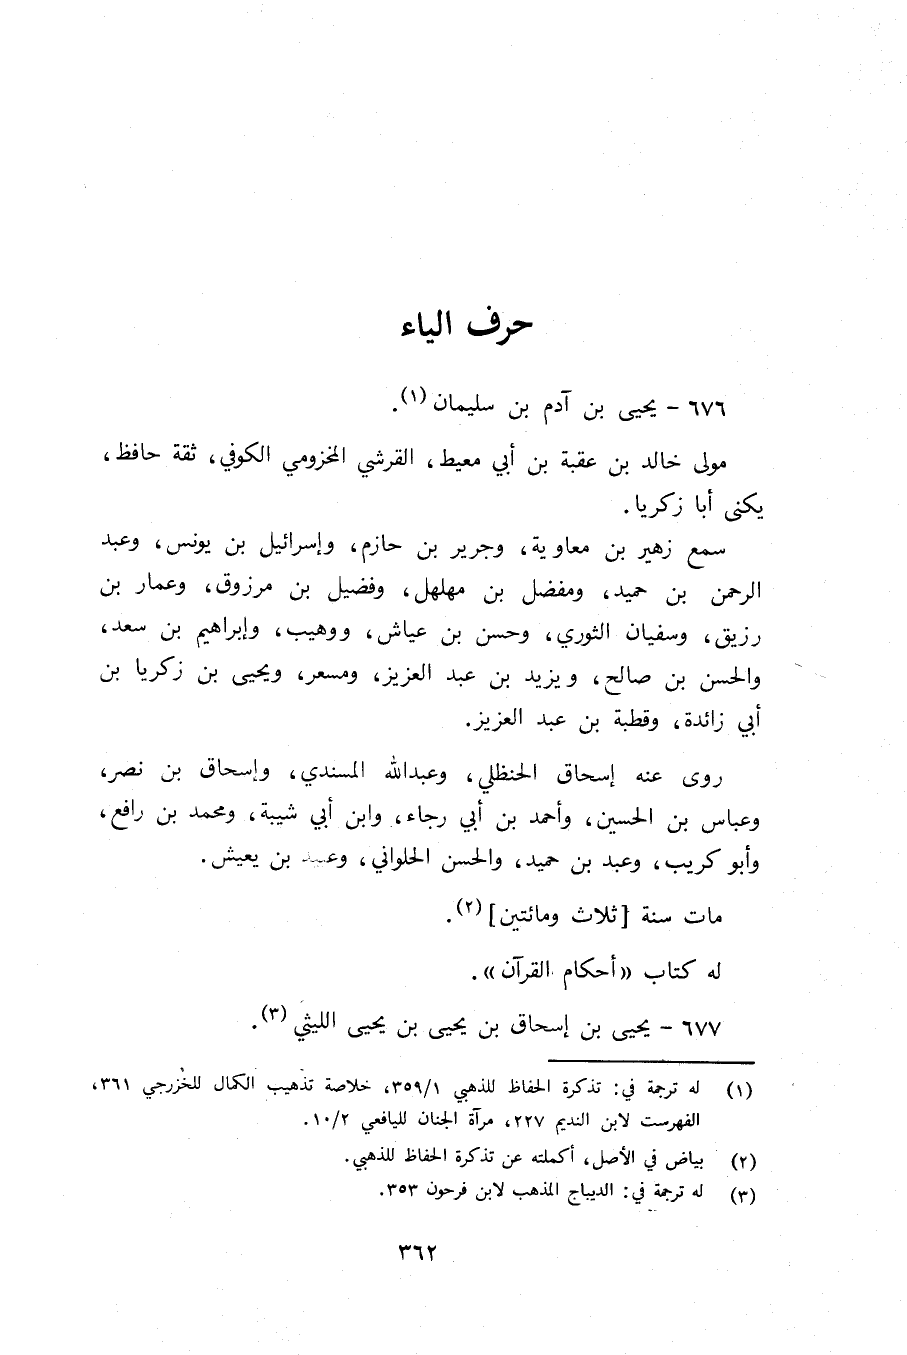 حرف الياء
٦٧٦ - يحيى بن آدم بن سليمان (١).
مولى خالد بن عقبة بن أبي معيط، القرشي المخزومي الكوفي، ثقة حافظ،
يكنى أبا زكريا.
سمع زهير بن معاوية، وجرير بن حازم، وإسرائيل بن يونس، وعبد
الرحمن بن حميد، ومفضل بن مهلهل، وفضيل بن مرزوق، وعمار بن
رزيق، وسفيان الثوري، وحسن بن عياش، ووهيب، وإبراهيم بن سعد،
والحسن بن صالح، ويزيد بن عبد العزيز، ومسعر، ويحيى بن زكريا بن
أبي زائدة، وقطبة بن عبد العزيز.
روى عنه إسحاق الحنظلي، وعبدالله المسندي، وإسحاق بن نصر،
وعباس بن الحسين، وأحمد بن أبي رجاء، وابن أبي شيبة، ومحمد بن رافع،
وأبو كريب، وعبد بن حميد، والحسن الحلواني، وعبيد بن يعيش.
مات سنة [ثلاث ومائتين] (٢).
له كتاب «أحكام القرآن».
٦٧٧ - يحيى بن إسحاق بن يحيى بن يحيى الليثي (٣).
(١) له ترجمة في: تذكرة الحفاظ للذهبي ٣٥٩/١، خلاصة تذهيب الكمال للخزرجي ٣٦١،
الفهرست لابن النديم ٢٢٧، مرآة الجنان لليافعي ١٠/٢.
(٢) بياض في الأصل، أكملته عن تذكرة الحفاظ للذهبي.
(٣) له ترجمة في: الديباج المذهب لابن فرحون ٣٥٣.
٣٦٢